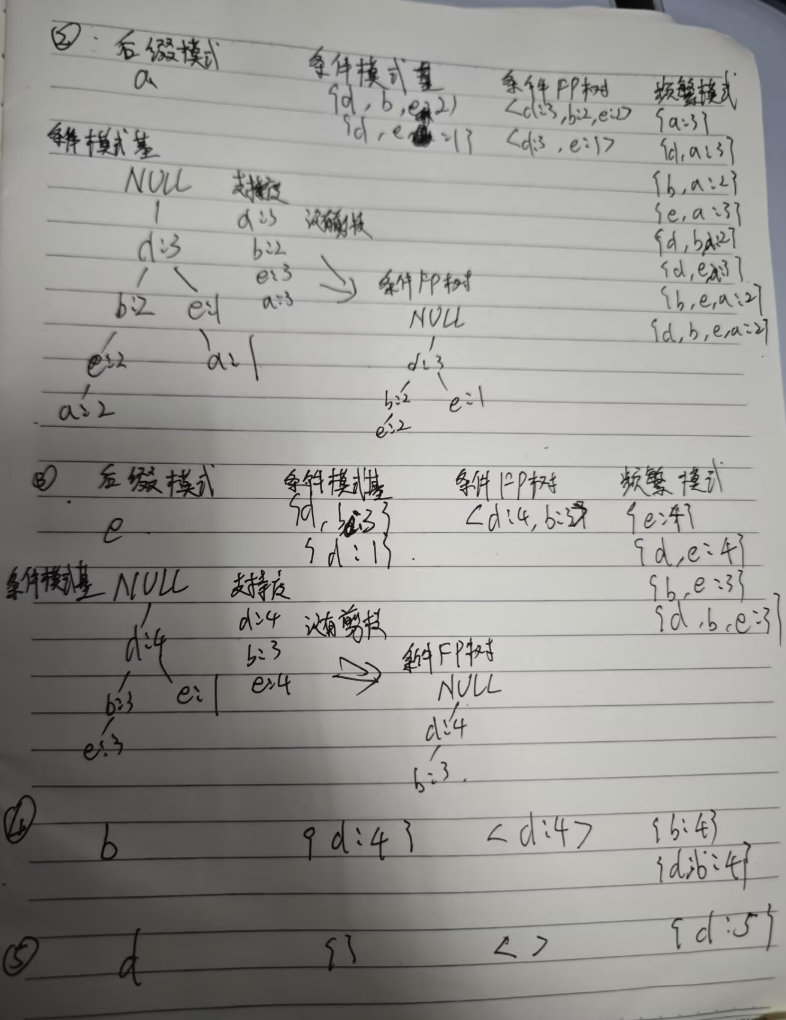 ② 后缀模式 条件模式基 条件FP树 频繁模式
a {d, b, e:2} <d:3, b:2, e:2> {a:3}
{d, e:1} <d:3, e:1> {d, a:3}
{b, a:2}
{e, a:3}
{d, b, a:2}
{d, e, a:3}
{b, e, a:2}
{d, b, e, a:2}
条件模式基
NULL 支持度
d:3 d:3 没有剪枝
b:2
b:2 e:1 e:3
a:3
e:2 a:1
a:2
条件FP树
NULL
d:3
b:2 e:1
e:2
③ 后缀模式 条件模式基 条件FP树 频繁模式
e {d, b:3} <d:4, b:3> {e:4}
{d:1} {d, e:4}
{b, e:3}
{d, b, e:3}
条件模式基 NULL 支持度
d:4 d:4 没有剪枝
b:3
b:3 e:1 e:4
e:3
条件FP树
NULL
d:4
b:3
④ b {d:4} <d:4> {b:4}
{d,b:4}
⑤ d {} < > {d:5}